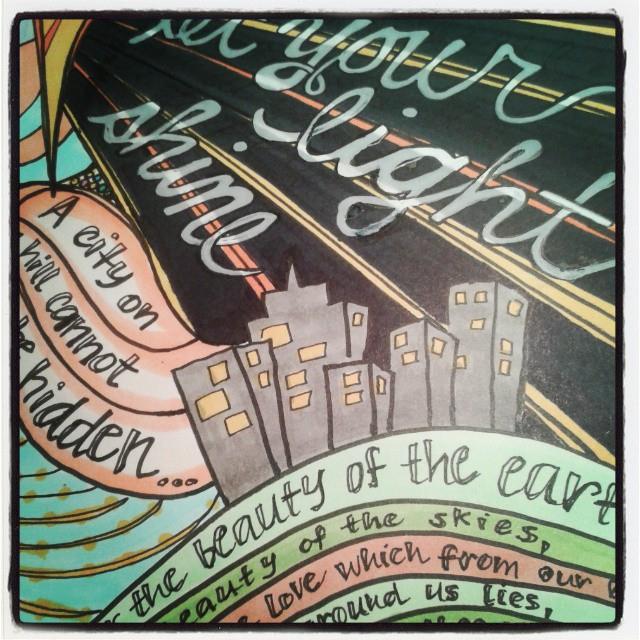 let your
light
shine
A city on
hill cannot
be
hidden...
the beauty of the
beauty of the skies,
love which from our
around us lies,